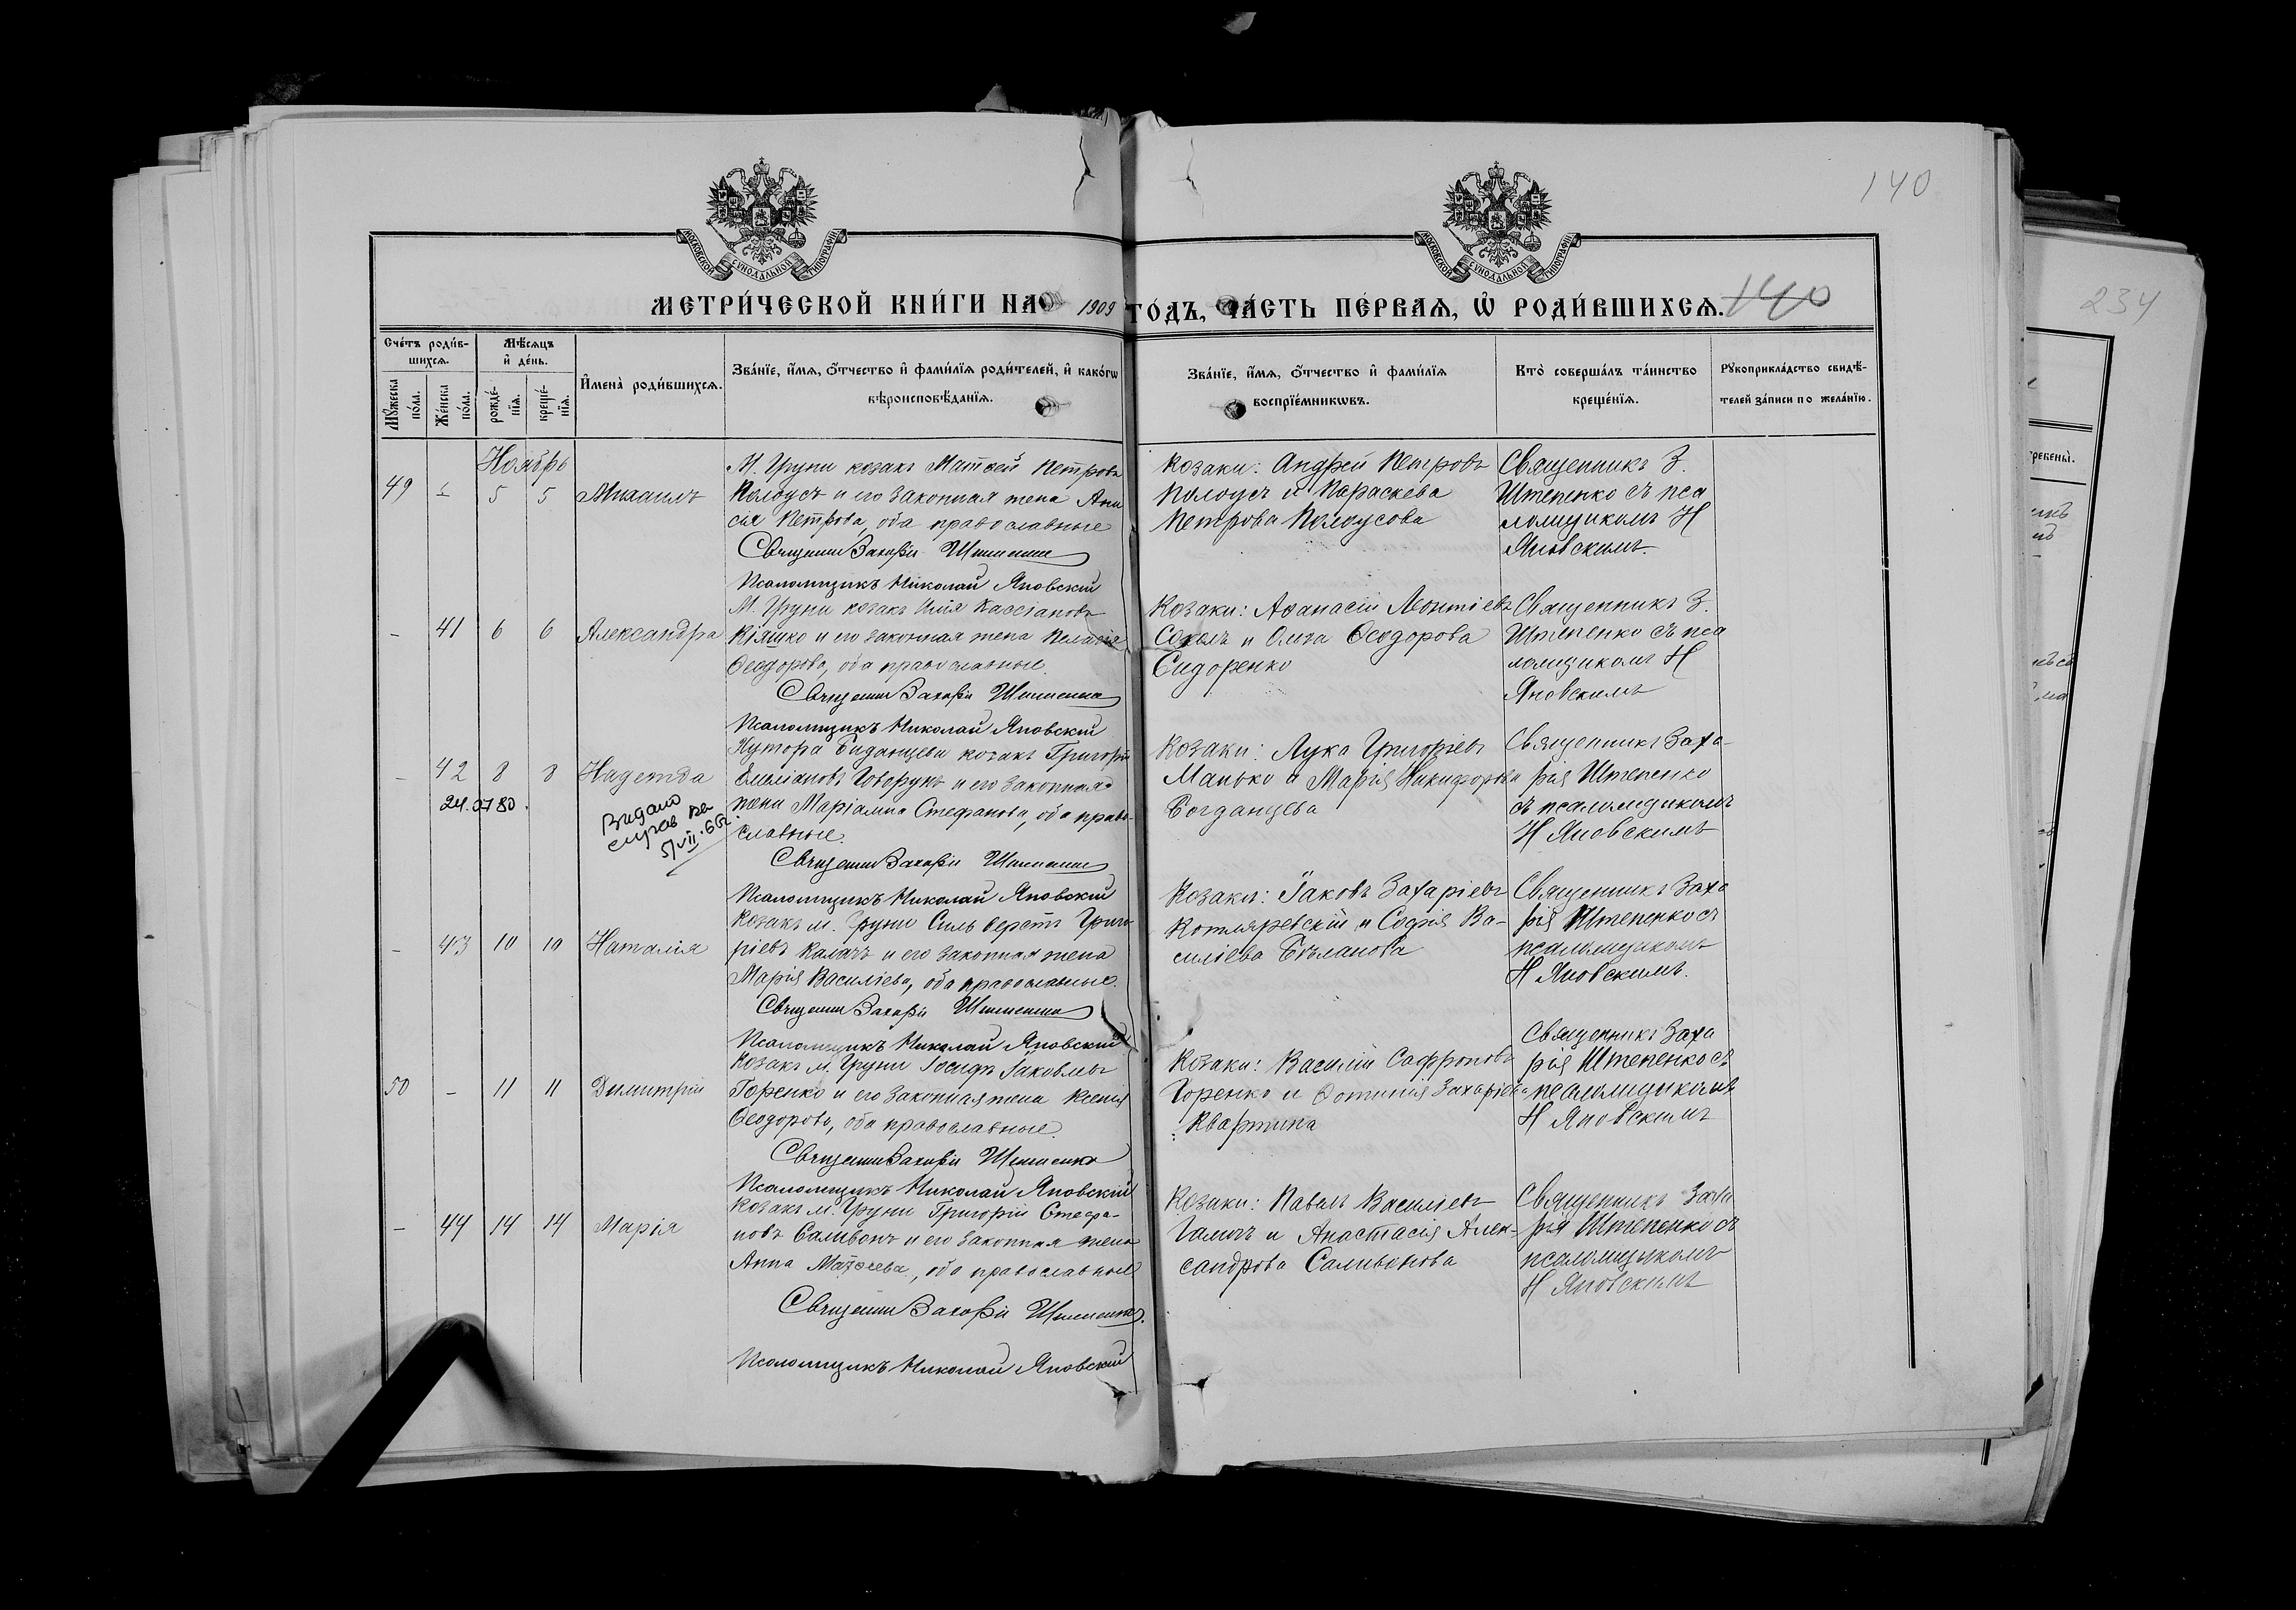 140
МОСКОВСКОЙ СѴНОДАЛЬНОЙ ТИПОГРАФІИ
МОСКОВСКОЙ СѴНОДАЛЬНОЙ ТИПОГРАФІИ
МЕТРИ́ЧЕСКОЙ КНИ́ГИ НА 1909 ГО́ДЪ, ЧА́СТЬ ПЕ́РВАѦ, Ѡ҆ РОДИ́ВШИХСѦ.
140
Сче́тъ роди́в-
шихсѧ.
Мѣ́сѧцъ
и҆ де́нь.
Мꙋ́жеска
по́ла.
Же́нска
по́ла.
рожде́-
нїѧ.
креще́-
нїѧ.
И҆мена̀ роди́вшихсѧ.
Зва́нїе, и҆́мѧ, ѻ҆́тчество и҆ фами́лїѧ роди́телей, и҆ како́гѡ
вѣроисповѣ́данїѧ.
Зва́нїе, и҆́мѧ, ѻ҆́тчество и҆ фами́лїѧ
воспрїе́мникѡвъ.
Кто̀ соверша́лъ та́инство
креще́нїѧ.
Рꙋкоприкла́дство свидѣ́-
телей за́писи по жела́нїю.
Ноябрь
49 - 5 5 Михаилъ
М. Груни козакъ Матѳей Петровъ
Колоусъ и его законная жена Ани
сія Петрова, оба православные
Священникъ Захарія Штепенко
Псаломщикъ Николай Яновскій
Козаки: Андрей Петровъ
Колоусъ и Параскева
Петрова Колоусова
Священникъ З.
Штепенко съ пса
ломщикомъ Н
Яновскимъ.
- 41 6 6 Александра
М. Груни козакъ Илія Кассіановъ
Кіяшко и его законная жена Пелагія
Ѳеодорова, оба православные
Священникъ Захарія Штепенко
Псаломщикъ Николай Яновскій
Козаки: Аѳанасій Леонтіевъ
Соколъ и Ольга Ѳеодорова
Сидоренко
Священникъ З.
Штепенко съ пса
ломщикомъ Н
Яновскимъ
- 42 8 8 Надежда
24.07 80.
Видано
справ
5/VII.66
Хутора Богданцева козакъ Григорій
Емеліановъ Говорунъ и его законная
жена Маріамна Стефанова, оба право-
славные.
Священникъ Захарія Штепенко
Псаломщикъ Николай Яновскій
Козаки: Лука Григоріевъ
Манько и Марія Никифорова
Богданцева
Священникъ Заха-
рія Штепенко
съ псаломщикомъ
Н Яновскимъ
- 43 10 10 Наталія
Козакъ м. Груни Сильверстъ Григо-
ріевъ Калачъ и его законная жена
Марія Василіева, оба православные.
Священникъ Захарія Штепенко
Псаломщикъ Николай Яновскій
Козаки: Іаковъ Захаріевъ
Котляревскій и Софія Ва-
силіева Бѣланова
Священникъ Заха
рія Штепенко съ
псаломщикомъ
Н Яновскимъ.
50 - 11 11 Димитрій
Козакъ м. Груни Іосифъ Іаковлевъ
Горенко и его законная жена Ксенія
Ѳеодорова, оба православные.
Священникъ Захарія Штепенко
Псаломщикъ Николай Яновскій
Козаки: Василій Сафроновъ
Горенко и Фотинія Захаріева
Квартина
Священникъ Заха
рія Штепенко съ
псаломщикомъ
Н Яновскимъ
- 44 14 14 Марія
Козакъ м. Груни Григорій Стефа-
новъ Саливонъ и его законная жена
Анна Матѳеева, оба православные
Священникъ Захарія Штепенко.
Псаломщикъ Николай Яновскій
Козаки: Павелъ Василіевъ
Галичъ и Анастасія Алек-
сандрова Саливонова
Священникъ Заха
рія Штепенко съ
псаломщикомъ
Н Яновскимъ
234